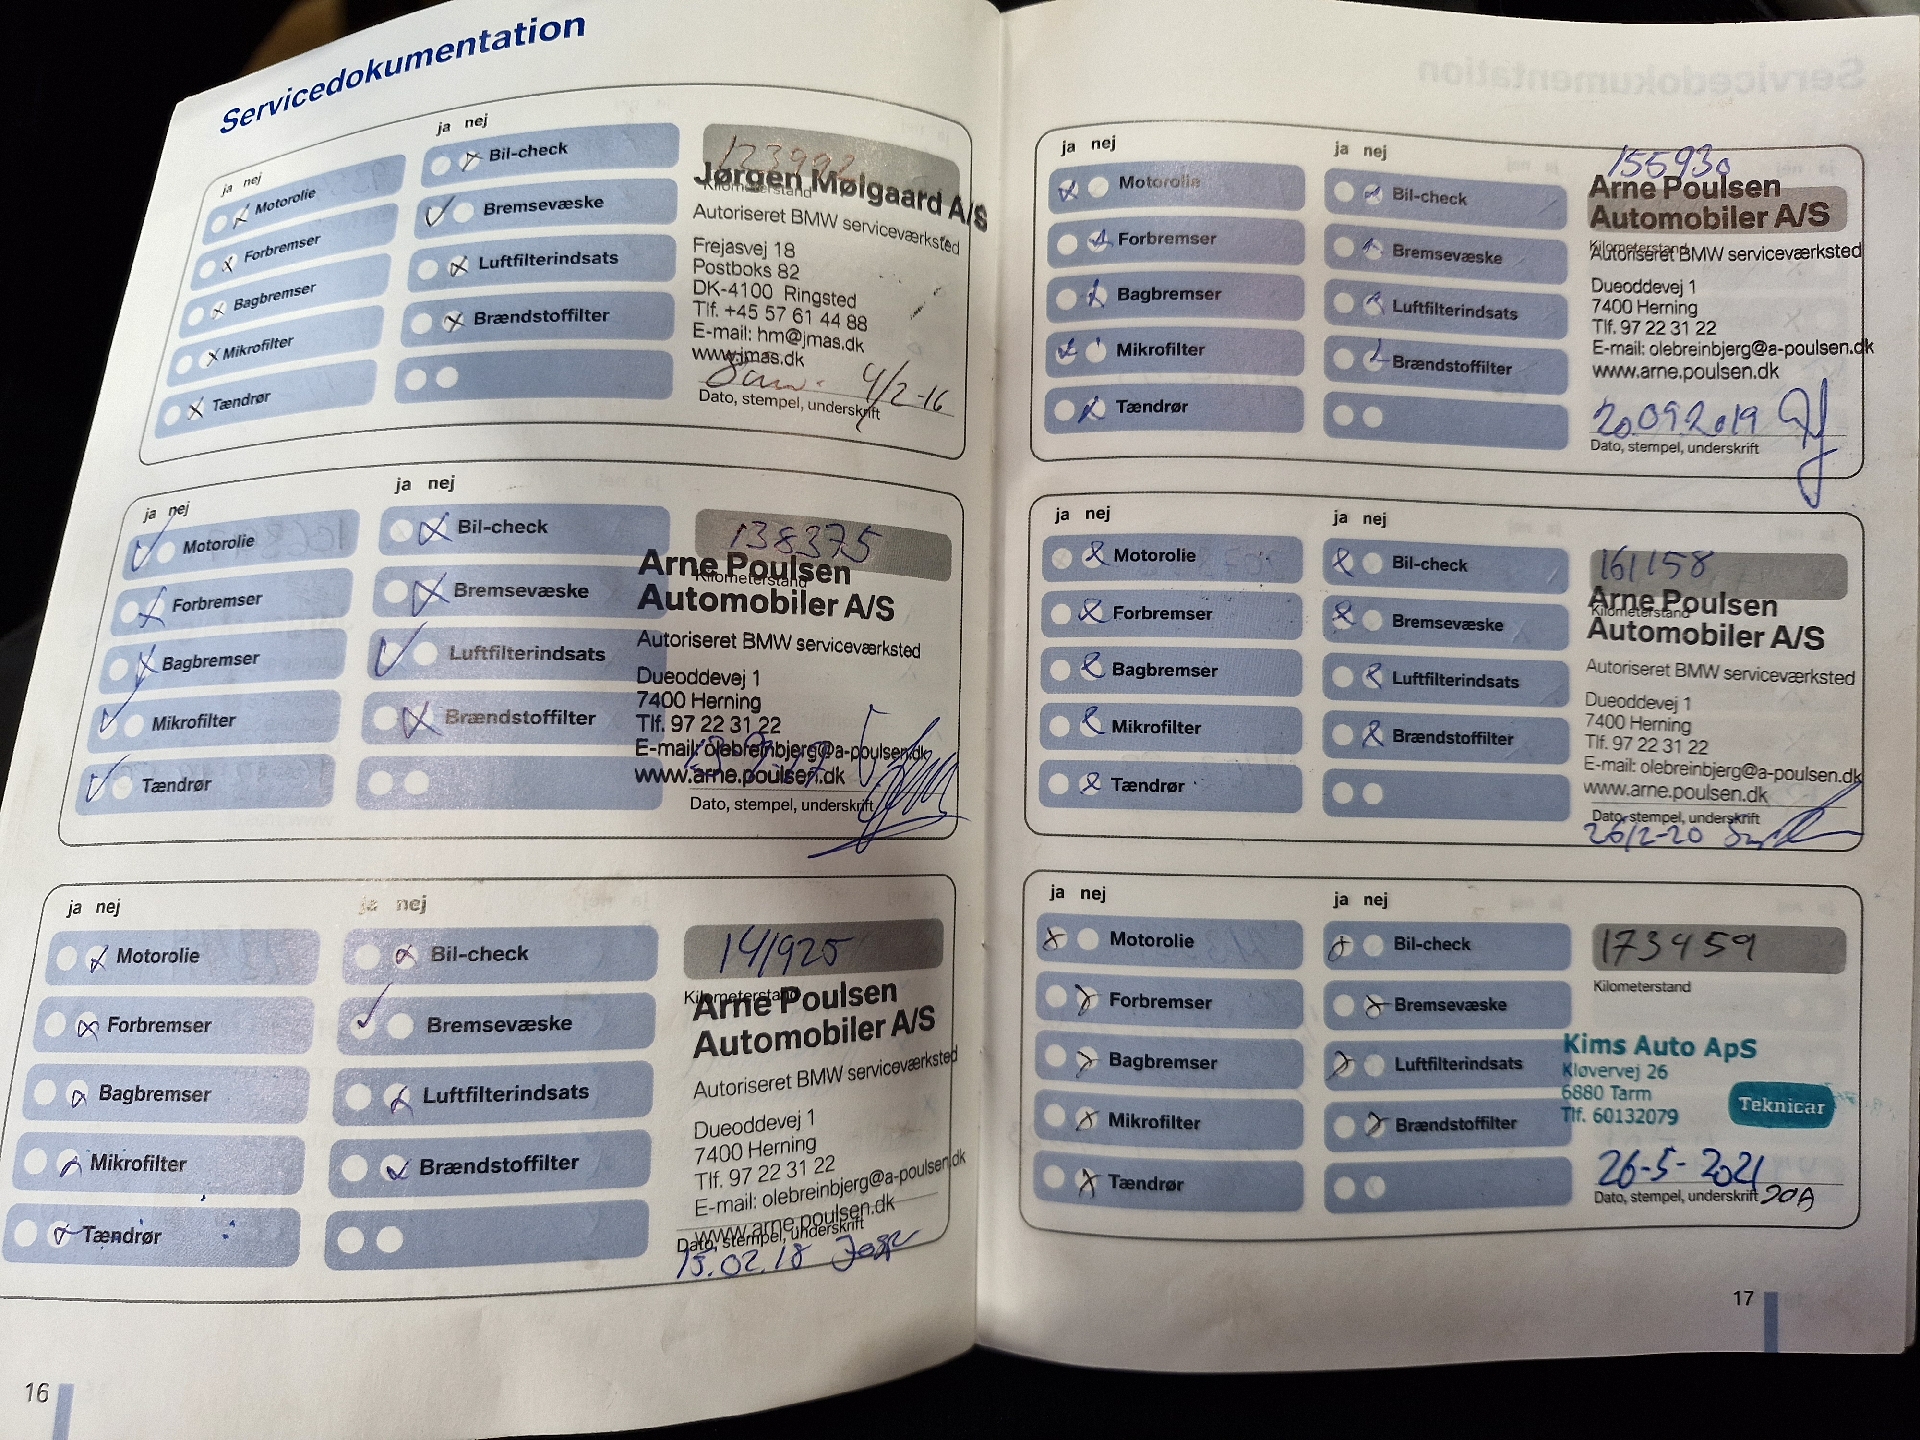 Servicedokumentation
ja nej
Motorolie
Forbremser
Bagbremser
Mikrofilter
Tændrør
ja nej
Bil-check
Bremsevæske
Luftfilterindsats
Brændstoffilter
123992
Kilometerstand
Jørgen Mølgaard A/S
Autoriseret BMW serviceværksted
Frejasvej 18
Postboks 82
DK-4100 Ringsted
Tlf. +45 57 61 44 88
E-mail: hm@jmas.dk
www.jmas.dk
4/2-16
Dato, stempel, underskrift
ja nej
Motorolie
Forbremser
Bagbremser
Mikrofilter
Tændrør
ja nej
Bil-check
Bremsevæske
Luftfilterindsats
Brændstoffilter
138375
Kilometerstand
Arne Poulsen
Automobiler A/S
Autoriseret BMW serviceværksted
Dueoddevej 1
7400 Herning
Tlf. 97 22 31 22
E-mail: olebreinbjerg@a-poulsen.dk
www.arne.poulsen.dk
Dato, stempel, underskrift
ja nej
Motorolie
Forbremser
Bagbremser
Mikrofilter
Tændrør
ja nej
Bil-check
Bremsevæske
Luftfilterindsats
Brændstoffilter
141925
Kilometerstand
Arne Poulsen
Automobiler A/S
Autoriseret BMW serviceværksted
Dueoddevej 1
7400 Herning
Tlf. 97 22 31 22
E-mail: olebreinbjerg@a-poulsen.dk
www.arne.poulsen.dk
Dato, stempel, underskrift
15.02.18
16
ja nej
Motorolie
Forbremser
Bagbremser
Mikrofilter
Tændrør
ja nej
Bil-check
Bremsevæske
Luftfilterindsats
Brændstoffilter
155930
Arne Poulsen
Automobiler A/S
Kilometerstand
Autoriseret BMW serviceværksted
Dueoddevej 1
7400 Herning
Tlf. 97 22 31 22
E-mail: olebreinbjerg@a-poulsen.dk
www.arne.poulsen.dk
20.09.2019
Dato, stempel, underskrift
ja nej
Motorolie
Forbremser
Bagbremser
Mikrofilter
Tændrør
ja nej
Bil-check
Bremsevæske
Luftfilterindsats
Brændstoffilter
161158
Arne Poulsen
Kilometerstand
Automobiler A/S
Autoriseret BMW serviceværksted
Dueoddevej 1
7400 Herning
Tlf. 97 22 31 22
E-mail: olebreinbjerg@a-poulsen.dk
www.arne.poulsen.dk
Dato, stempel, underskrift
26/2-20
ja nej
Motorolie
Forbremser
Bagbremser
Mikrofilter
Tændrør
ja nej
Bil-check
Bremsevæske
Luftfilterindsats
Brændstoffilter
173459
Kilometerstand
Kims Auto ApS
Kløvervej 26
6880 Tarm
Tlf. 60132079
Teknicar
26-5-2021
Dato, stempel, underskrift
17